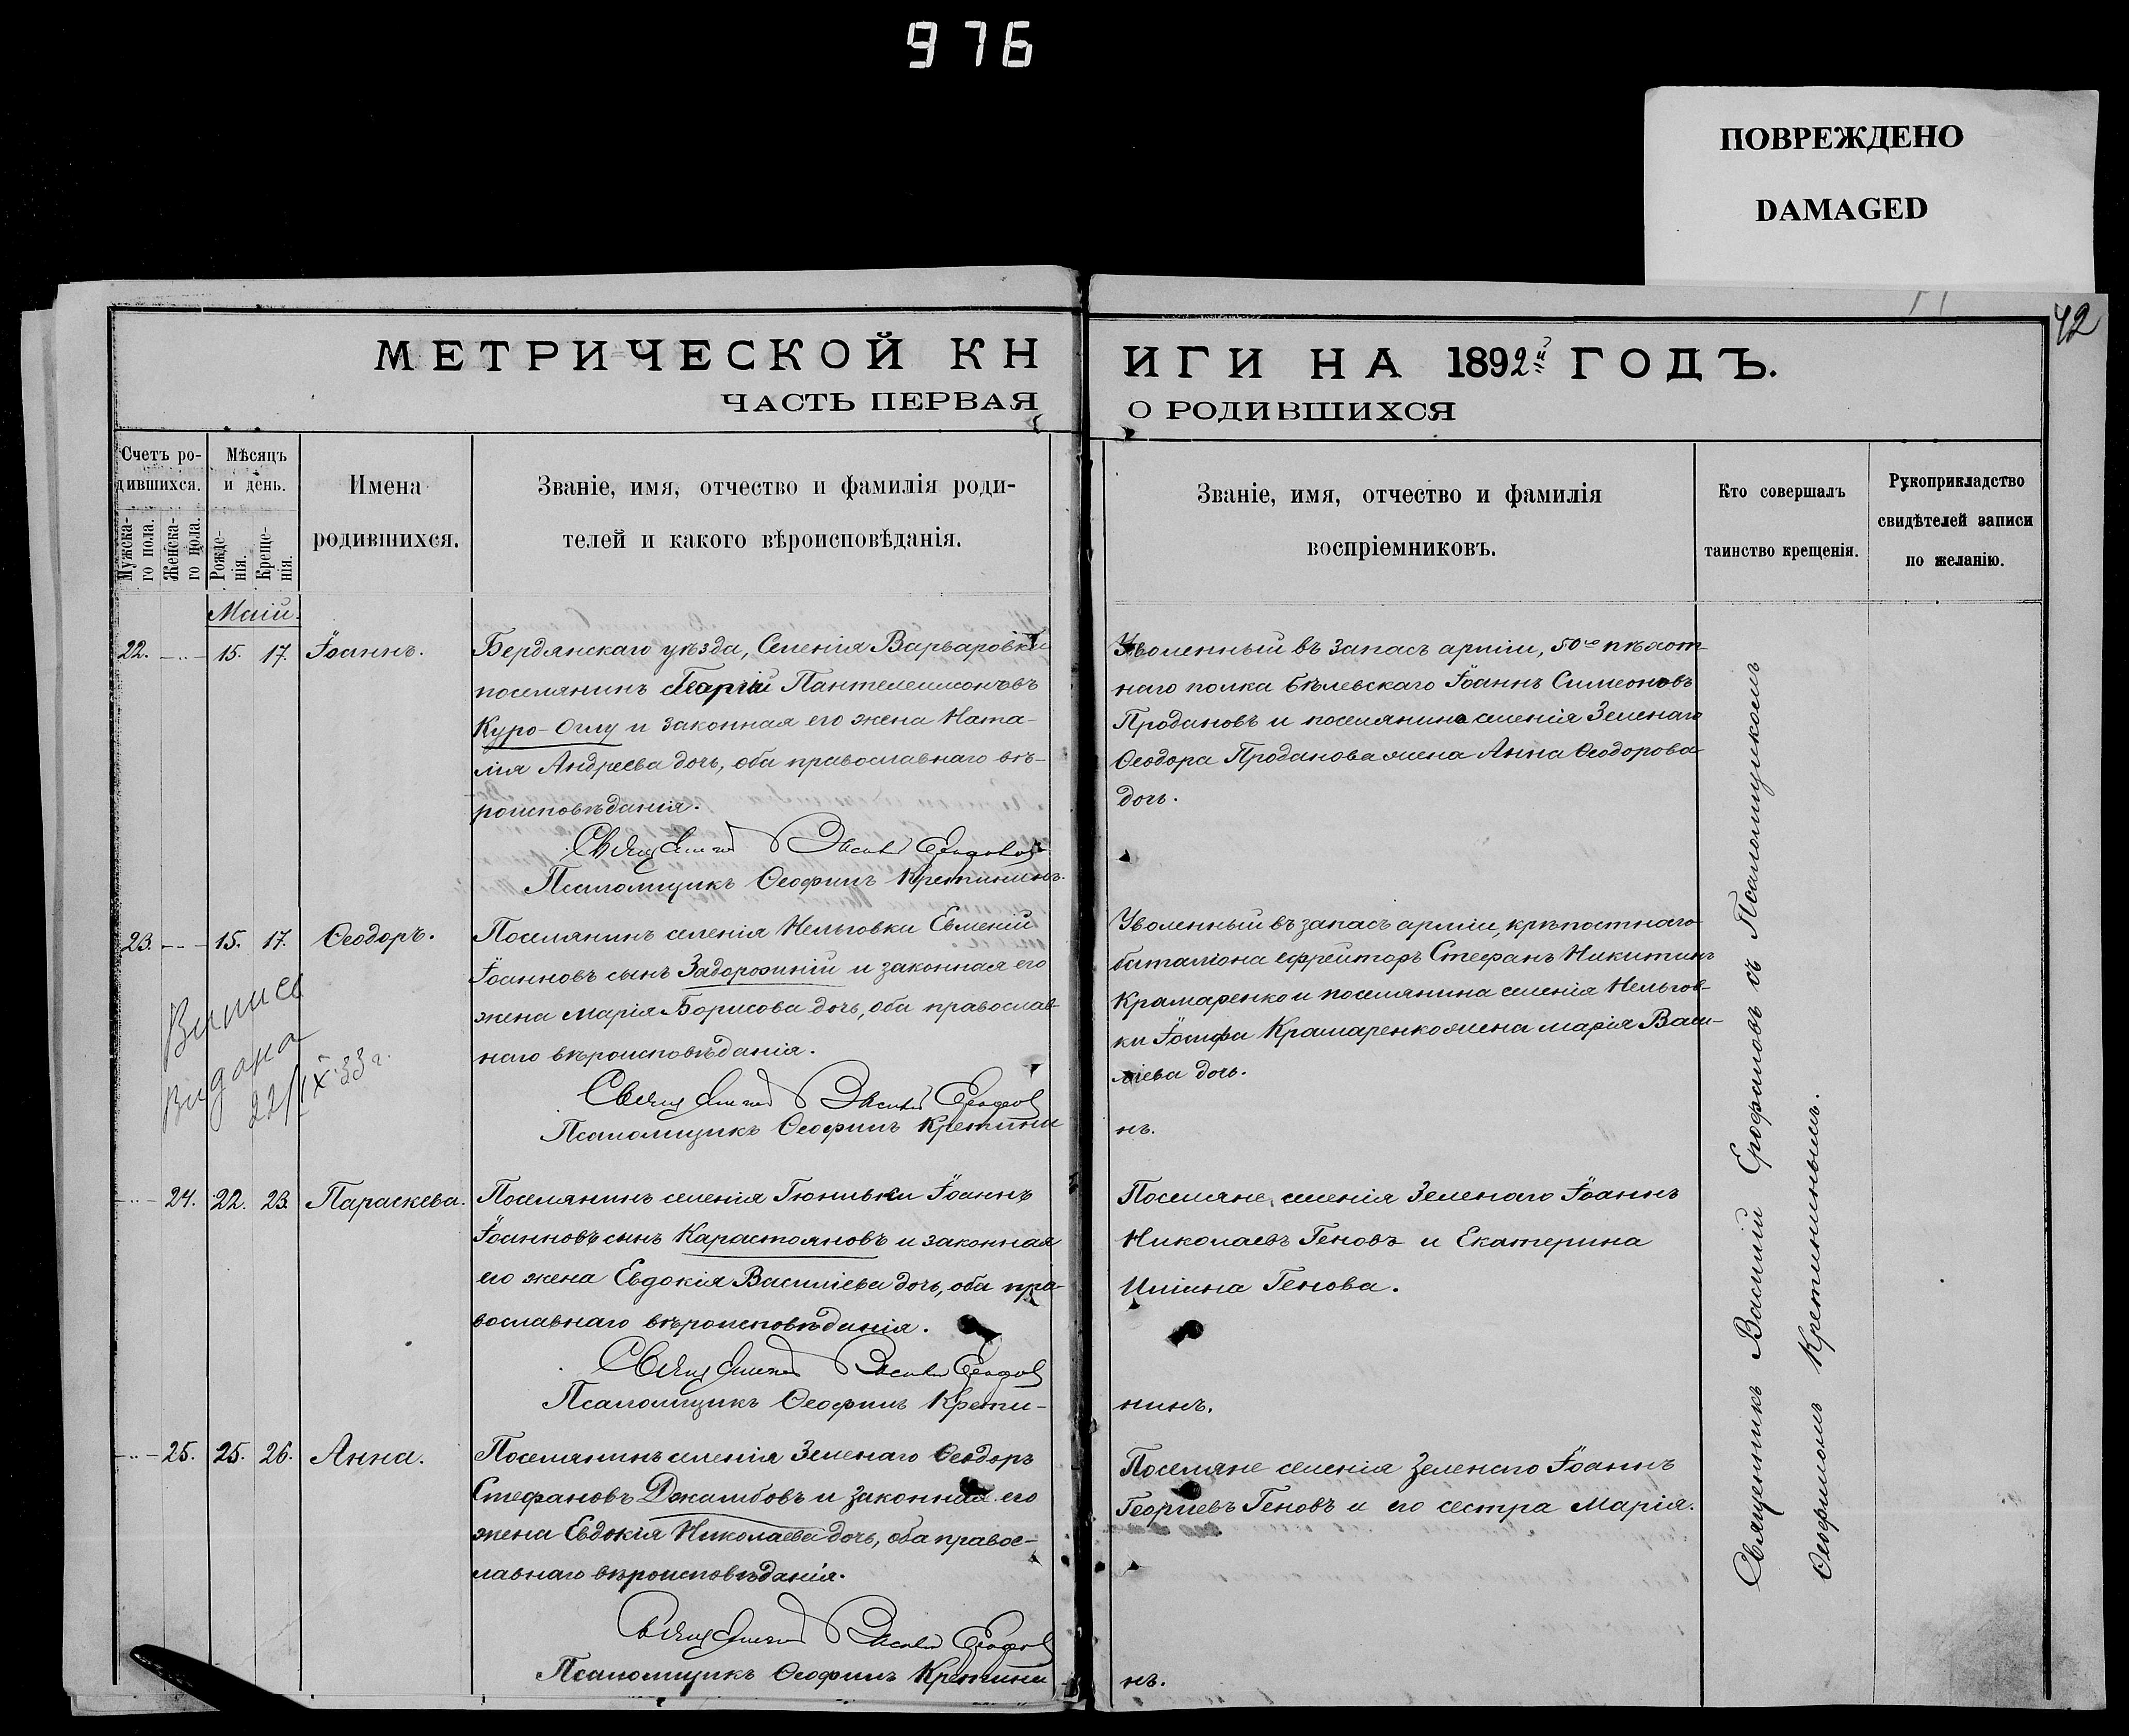 976
ПОВРЕЖДЕНО
DAMAGED
42
МЕТРИЧЕСКОЙ КНИГИ НА 1892й ГОДЪ.
ЧАСТЬ ПЕРВАЯ О РОДИВШИХСЯ
Счетъ ро-
дившихся.
Мужска-
го пола.
Женска-
го пола.
Мѣсяцъ
и день.
Рожде-
нія.
Креще-
нія.
Имена
родившихся.
Званіе, имя, отчество и фамилія роди-
телей и какого вѣроисповѣданія.
Званіе, имя, отчество и фамилія
воспріемниковъ.
Кто совершалъ
таинство крещенія.
Рукоприкладство
свидѣтелей записи
по желанію.
Маій.
22. 15. 17. Іоаннъ.
Бердянскаго уѣзда, Селенія Варваровки
поселянинъ Георгій Пантелеимоновъ
Куро-Оглу и законная его жена Ната-
лія Андреева дочь, оба православнаго вѣ-
роисповѣданія.
Священникъ Василій Ерофаловъ
Псаломщикъ Ѳеофилъ Кретининъ.
Уволенный въ запасъ арміи, 50го пѣхот-
наго полка Бѣлевскаго Іоаннъ Симеоновъ
Продановъ и поселянина селенія Зеленаго
Ѳеодора Проданова жена Анна Ѳеодорова
дочь.
23. 15. 17. Ѳеодоръ.
Випись
Видана
22/IX 33 г.
Поселянинъ селенія Нельговки Евменій
Іоанновъ сынъ Задорожній и законная его
жена Марія Борисова дочь, оба православ-
наго вѣроисповѣданія.
Священникъ Василій Ерофаловъ
Псаломщикъ Ѳеофилъ Кретини
нъ.
Уволенный въ запасъ арміи, крѣпостнаго
баталіона ефрейторъ Стефанъ Никитинъ
Крамаренко и поселянина селенія Нельгов-
ки Іосифа Крамаренко жена Марія Васи-
ліева дочь.
24. 22. 23. Параскева.
Поселянинъ селенія Гюнивки Іоаннъ
Іоанновъ сынъ Карастояновъ и законная
его жена Евдокія Василіева дочь, оба пра-
вославнаго вѣроисповѣданія.
Священникъ Василій Ерофаловъ
Псаломщикъ Ѳеофилъ Крети-
нинъ.
Поселяне селенія Зеленаго Іоаннъ
Николаевъ Геновъ и Екатерина
Иліина Генова.
25. 25. 26. Анна.
Поселянинъ селенія Зеленаго Ѳеодоръ
Стефановъ Джамбовъ и законная его
жена Евдокія Николаева дочь, оба правос-
лавнаго вѣроисповѣданія.
Священникъ Василій Ерофаловъ
Псаломщикъ Ѳеофилъ Кретини
нъ.
Поселяне селенія Зеленаго Іоаннъ
Георгіевъ Геновъ и его сестра Марія.
Священникъ Василій Ерофаловъ съ Псаломщикомъ
Ѳеофиломъ Кретининымъ.